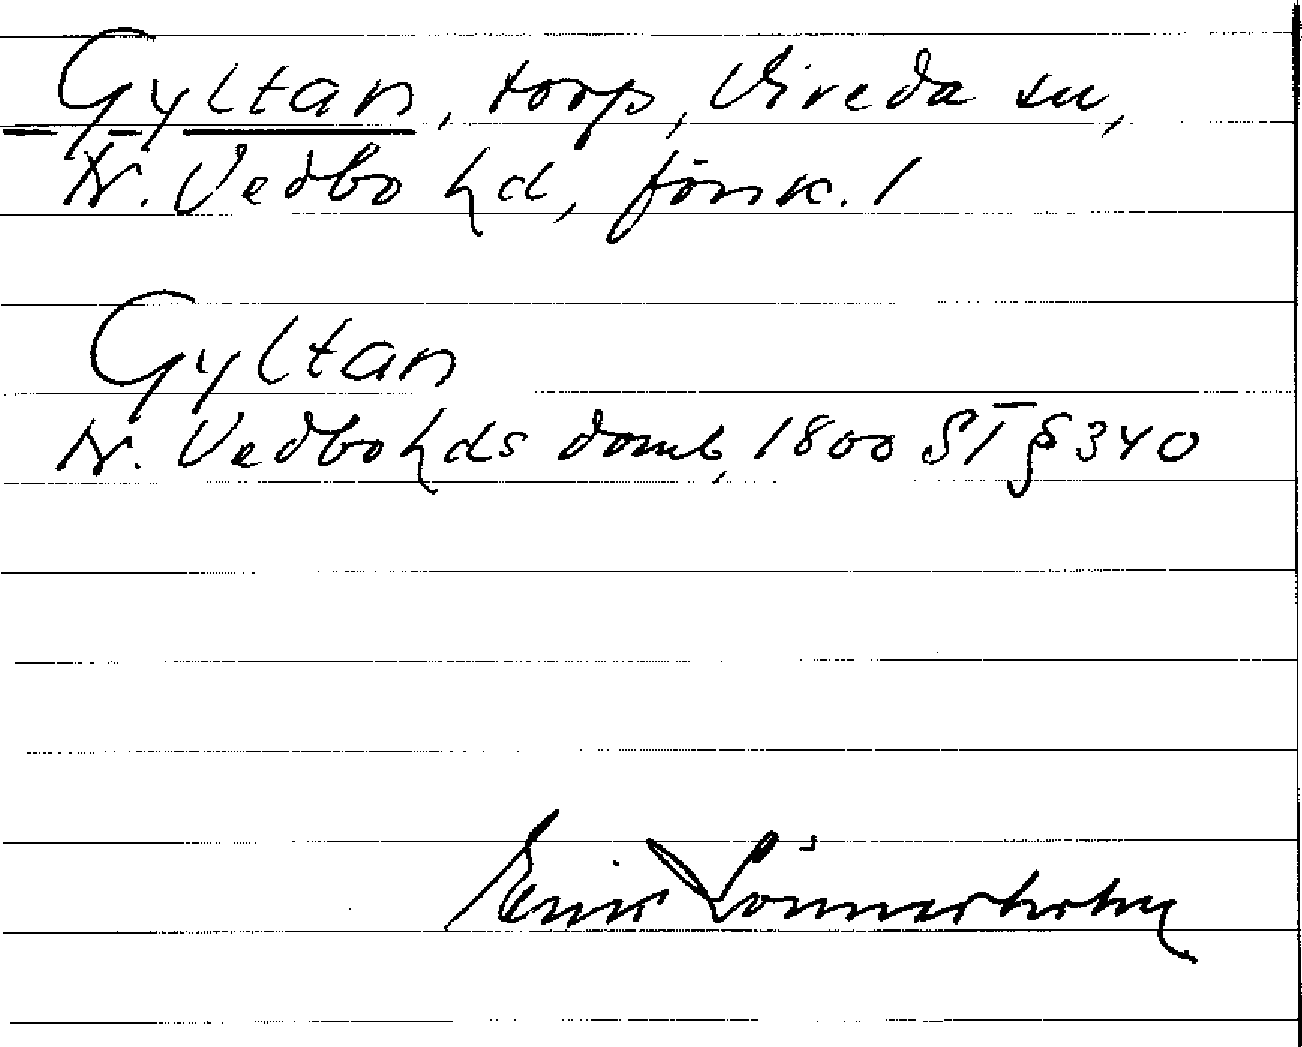 Gyltan, torp, Vireda sn,
N. Vedbo hd, Jönk. l
Gyltan
N. Vedbo hds domb, 1800 ST § 340
Erik Lönnerholm